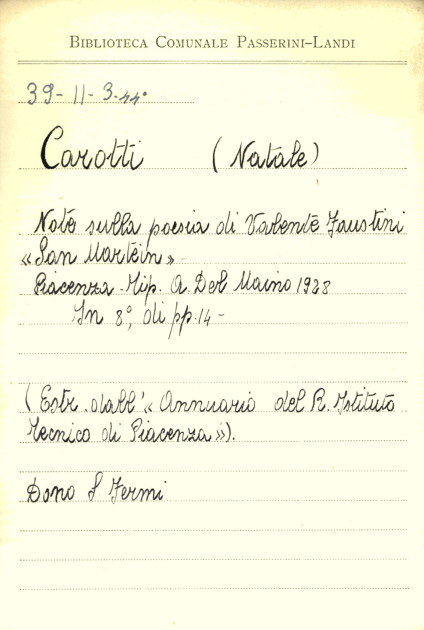 BIBLIOTECA COMUNALE PASSERINI-LANDI
39-11-3.44°
Carotti (Natale)
Note sulla poesia di Valente Faustini
«San Martein» -
Piacenza - Tip. A. Del Maino 1928
In 8°, di pp. 14 -
(Estr. dall'« Annuario del R. Istituto
Tecnico di Piacenza»).
Dono S. Fermi